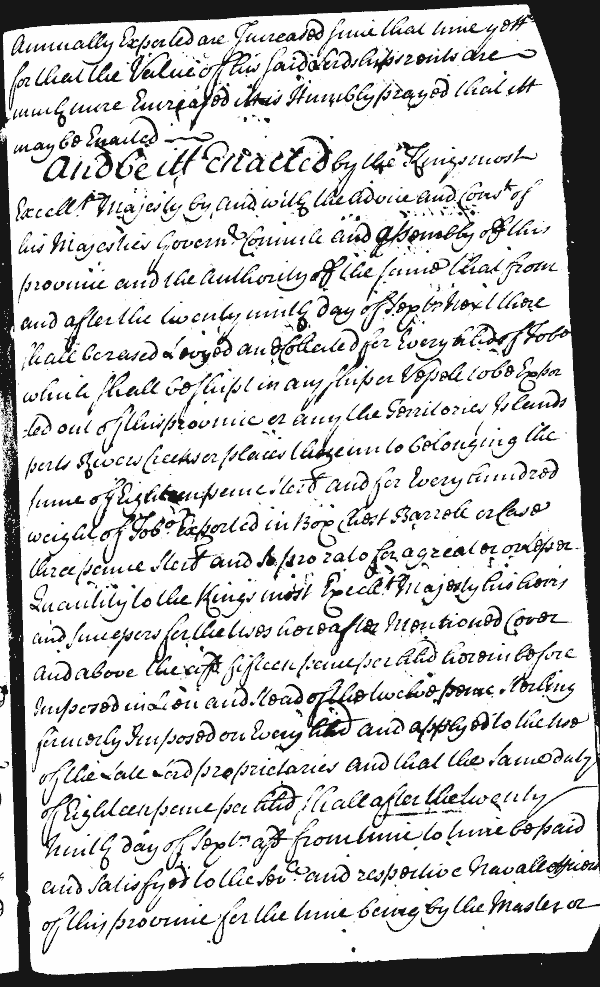 Annually Exported are Increased since that time yett
for that the Value of his said Lordships rents are
much more Encreased itt is Humbly prayed that itt
may be Enacted
And be itt Enacted by the Kings most
Excellt Majesty by and with the advice and Const of
his Majesties Governr Councile and assembly of this
province and the Authority of the same that from
and after the twenty ninth day of Septbr Next there
shall be raised Levyed and Collected for Every hhd of Tobo
which shall be shipt in any ship or Vessell to be Expor
=ted out of this province or any the Territories Islands
ports Rivers Creeks or places thereunto belonging the
sume of Eighteen pence sterl and for Every hundred
weight of Tobo Exported in Box Chest Barrell or Case
three pence sterl and so pro rato for a greater or Lesser
Quantity to the Kings most Excellt Majesty his heirs
and successors for the uses hereafter Mentioned Over
and above the afd fifteen pence per hhd herein before
Imposed in Lieu and stead of the twelve pence sterling
formerly Imposed on Every hhd and applyed to the use
of the Late Lord proprietaries and that the same duty
of Eighteen pence per hhd shall after the twenty
ninth day of Septbr afd from time to time be paid
and satisfyed to the sevl and respective Navall officers
of this province for the time being by the Master or